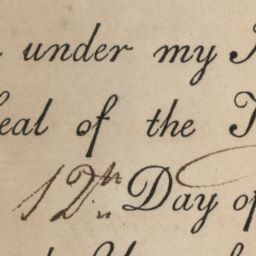 under my
eal of the T
12th Day of